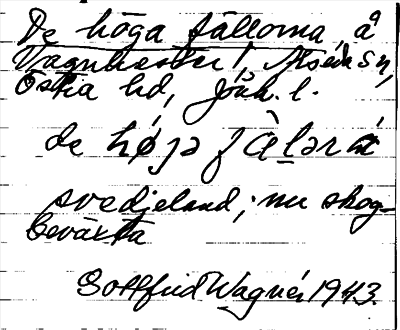 De höga fällorna, å
Vagnhester!,
Östra hd, Jönk. l.
de hø̀jə fàlərna
svedjeland; nu skog-
beväxta
Gottfrid Wagnér 1943.